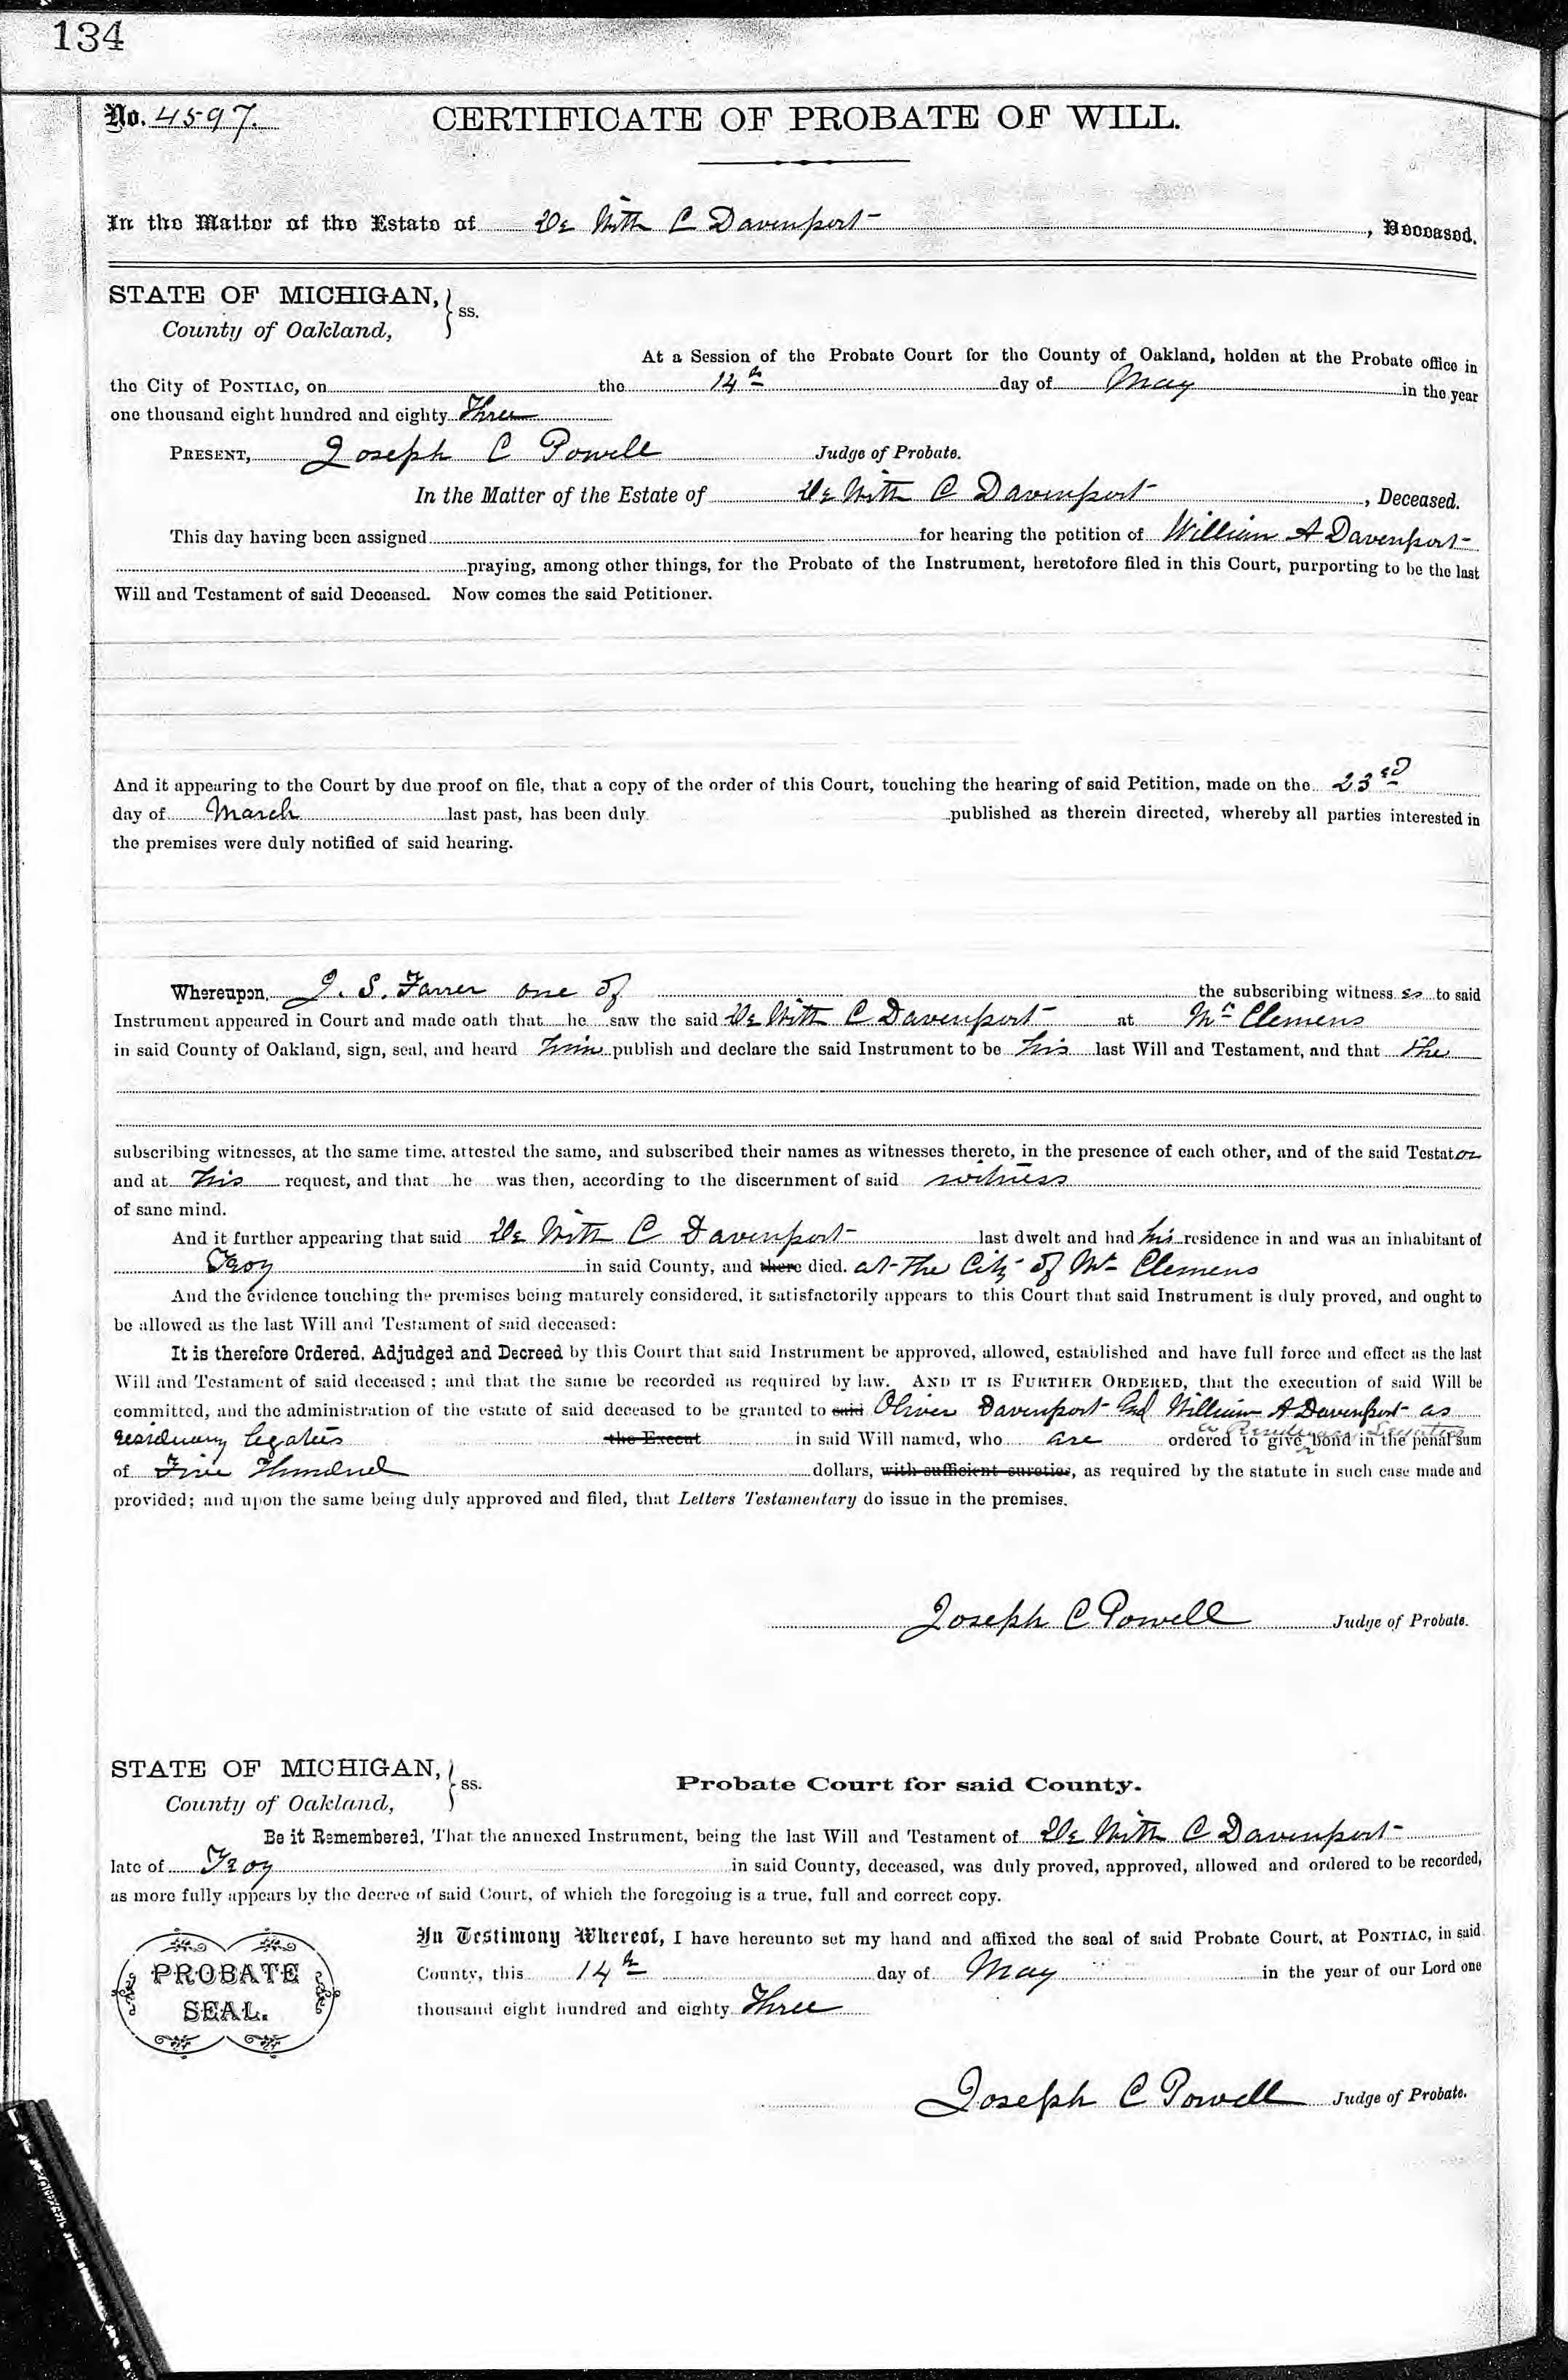 134
No. 4597. CERTIFICATE OF PROBATE OF WILL.
In the Matter of the Estate of De Witt C Davenport , Deceased.
STATE OF MICHIGAN, } ss.
County of Oakland,
At a Session of the Probate Court for the County of Oakland, holden at the Probate office in
the City of PONTIAC, on the 14th day of May in the year
one thousand eight hundred and eighty Three
PRESENT, Joseph C Powell Judge of Probate.
In the Matter of the Estate of De Witt C Davenport , Deceased.
This day having been assigned for hearing the petition of William A Davenport
praying, among other things, for the Probate of the Instrument, heretofore filed in this Court, purporting to be the last
Will and Testament of said Deceased. Now comes the said Petitioner.
And it appearing to the Court by due proof on file, that a copy of the order of this Court, touching the hearing of said Petition, made on the 23rd
day of March last past, has been duly published as therein directed, whereby all parties interested in
the premises were duly notified of said hearing.
Whereupon, J. S. Farrer one of the subscribing witness es to said
Instrument appeared in Court and made oath that he saw the said De Witt C Davenport at Mt Clemens
in said County of Oakland, sign, seal, and heard him publish and declare the said Instrument to be his last Will and Testament, and that the
subscribing witnesses, at the same time, attested the same, and subscribed their names as witnesses thereto, in the presence of each other, and of the said Testator
and at his request, and that he was then, according to the discernment of said witness
of sane mind.
And it further appearing that said De Witt C Davenport last dwelt and had his residence in and was an inhabitant of
Troy in said County, and there died. at the City of Mt Clemens
And the evidence touching the premises being maturely considered, it satisfactorily appears to this Court that said Instrument is duly proved, and ought to
be allowed as the last Will and Testament of said deceased:
It is therefore Ordered, Adjudged and Decreed by this Court that said Instrument be approved, allowed, established and have full force and effect as the last
Will and Testament of said deceased; and that the same be recorded as required by law. AND IT IS FURTHER ORDERED, that the execution of said Will be
committed, and the administration of the estate of said deceased to be granted to said Oliver Davenport and William A Davenport as
residuary legatees the Execut in said Will named, who are ordered to give bond in the penal sum
as Residuary Legatees
of Five Hundred dollars, with sufficient sureties, as required by the statute in such case made and
provided; and upon the same being duly approved and filed, that Letters Testamentary do issue in the premises.
Joseph C Powell Judge of Probate.
STATE OF MICHIGAN, } ss.
County of Oakland,
Probate Court for said County.
Be it Remembered, That the annexed Instrument, being the last Will and Testament of De Witt C Davenport
late of Troy in said County, deceased, was duly proved, approved, allowed and ordered to be recorded,
as more fully appears by the decree of said Court, of which the foregoing is a true, full and correct copy.
In Testimony Whereof, I have hereunto set my hand and affixed the seal of said Probate Court, at PONTIAC, in said
County, this 14th day of May in the year of our Lord one
thousand eight hundred and eighty Three
PROBATE
SEAL.
Joseph C Powell Judge of Probate.